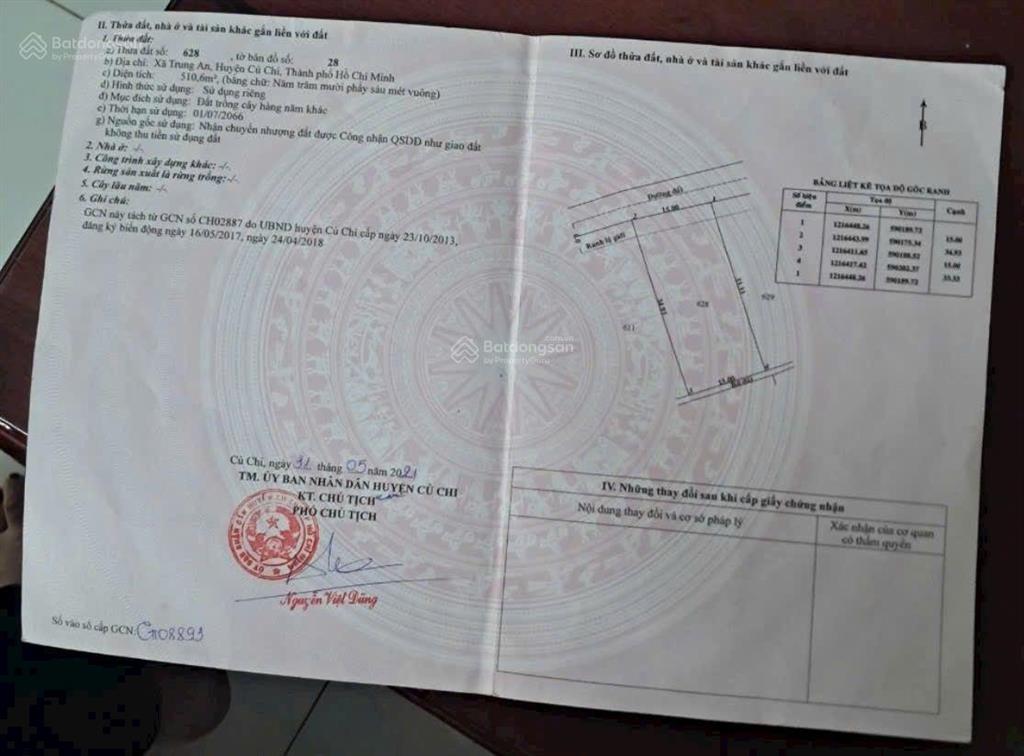 II. Thửa đất, nhà ở và tài sản khác gắn liền với đất
1. Thửa đất:
a) Thửa đất số: 628 , tờ bản đồ số: 28
b) Địa chỉ: Xã Trung An, Huyện Củ Chi, Thành phố Hồ Chí Minh
c) Diện tích: 510,6m², (bằng chữ: Năm trăm mười phẩy sáu mét vuông)
d) Hình thức sử dụng: Sử dụng riêng
đ) Mục đích sử dụng: Đất trồng cây hàng năm khác
e) Thời hạn sử dụng: 01/07/2066
g) Nguồn gốc sử dụng: Nhận chuyển nhượng đất được Công nhận QSDĐ như giao đất
không thu tiền sử dụng đất
2. Nhà ở: -/-.
3. Công trình xây dựng khác: -/-.
4. Rừng sản xuất là rừng trồng: -/-.
5. Cây lâu năm: -/-.
6. Ghi chú:
GCN này tách từ GCN số CH02887 do UBND huyện Củ Chi cấp ngày 23/10/2013,
đăng ký biến động ngày 16/05/2017, ngày 24/04/2018.
Củ Chi, ngày 31 tháng 05 năm 2021
TM. ỦY BAN NHÂN DÂN HUYỆN CỦ CHI
KT. CHỦ TỊCH
PHÓ CHỦ TỊCH
Nguyễn Việt Dũng
Số vào sổ cấp GCN:
III. Sơ đồ thửa đất, nhà ở và tài sản khác gắn liền với đất
B
Đường đá
15.00
Ranh lộ giới
34.93
33.53
611
628
629
15.00
BẢNG LIỆT KÊ TỌA ĐỘ GÓC RANH
Số hiệu điểm Tọa độ Cạnh
X(m) Y(m)
1 1216448.26 590189.72
15.00
2 1216443.99 590175.34
34.93
3 1216411.65 590188.52
15.00
4 1216417.42 590202.37
33.53
1 1216448.26 590189.72
IV. Những thay đổi sau khi cấp giấy chứng nhận
Nội dung thay đổi và cơ sở pháp lý
Xác nhận của cơ quan
có thẩm quyền
Batdongsan
by PropertyGuru
Batdongsan.com.vn
by PropertyGuru
Batdongsan
by PropertyGuru